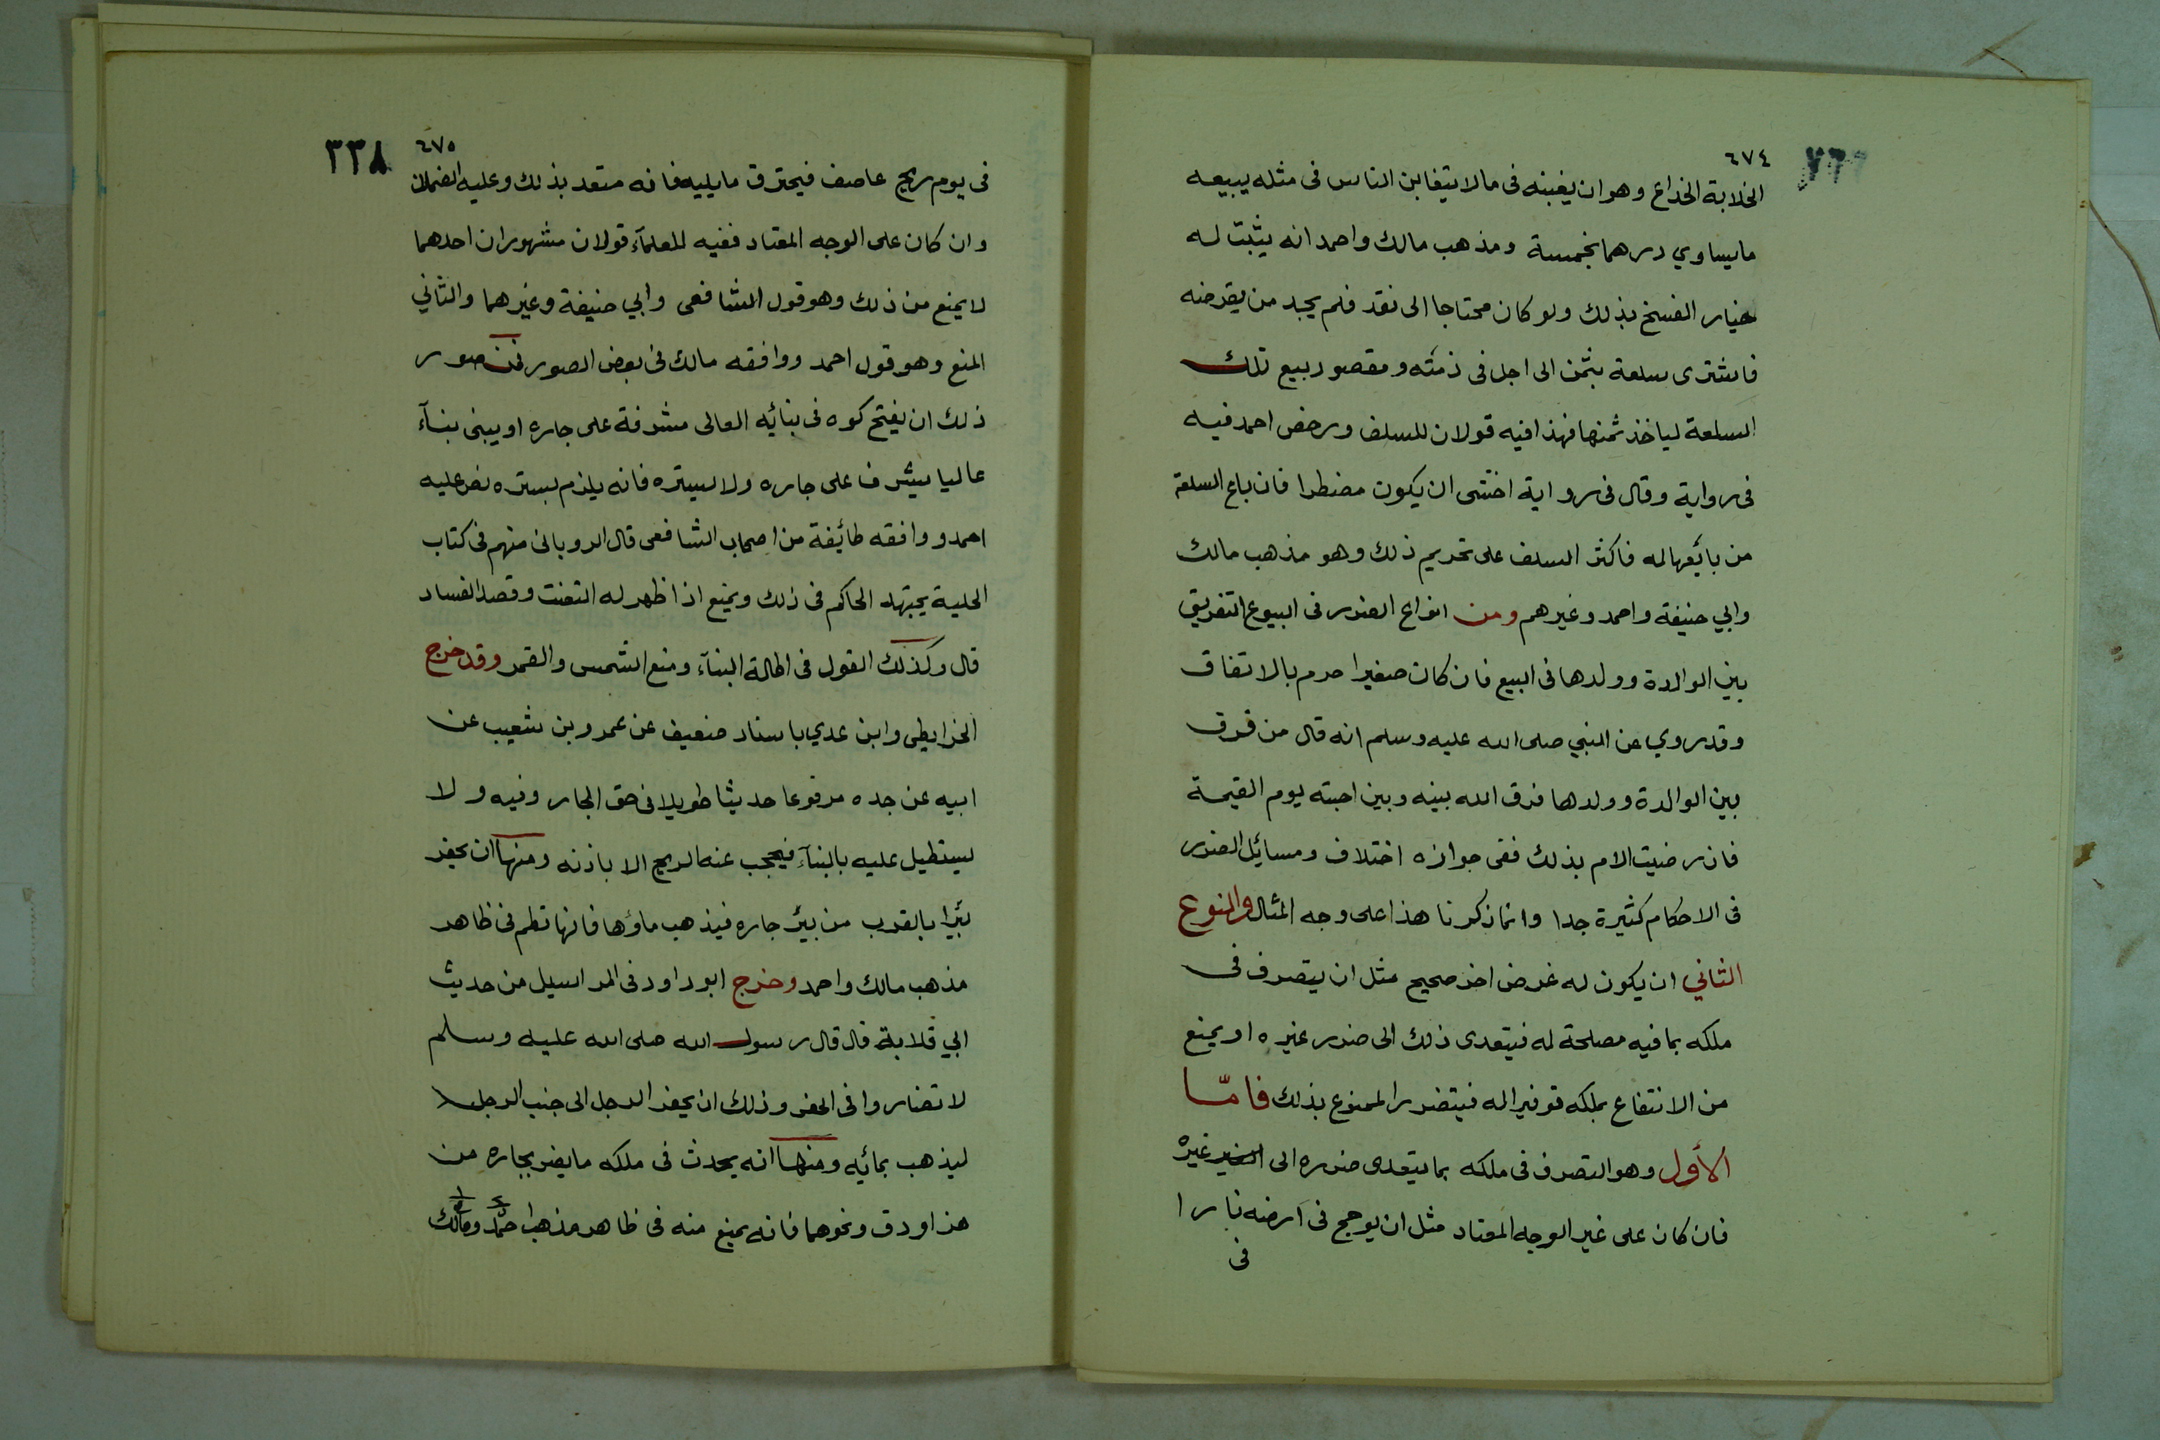 ٦٧٤
الخلابة الخداع وهو ان يغبنه فى ما لا يتغابن الناس فى مثله يبيعه
ما يساوي درهما بخمسة ومذهب مالك واحمد انه يثبت له
خيار الفسخ بذلك ولو كان محتاجا الى نقد فلم يجد من يقرضه
فاشترى سلعة بثمن الى اجل فى ذمته ومقصود بيع تلك
السلعة لياخذ ثمنها فهذا فيه قولان للسلف ورخص احمد فيه
فى رواية وقال فى رواية اخشى ان يكون مضطرا فان باع السلعة
من بائعها له فاكثر السلف على تحريم ذلك وهو مذهب مالك
وابي حنيفة واحمد وغيرهم ومن انواع الضرر فى البيوع التفريق
بين الوالدة وولدها فى البيع فان كان صغيرا حرم بالاتفاق
وقد روي عن النبي صلى الله عليه وسلم انه قال من فرق
بين الوالدة وولدها فرق الله بينه وبين احبته يوم القيمة
فان رضيت الام بذلك ففى جوازه اختلاف ومسائل الضرر
فى الاحكام كثيرة جدا وانما ذكرنا هذا على وجه المثال والنوع
الثاني ان يكون له غرض اخر صحيح مثل ان يتصرف فى
ملكه بما فيه مصلحة له فيتعدى ذلك الى ضرر غيره او يمنع
من الانتفاع بملكه توفيرا له فيتضرر الممنوع بذلك فامّا
الأول وهو التصرف فى ملكه بما يتعدى ضرره الى غيره
فان كان على غير الوجه المعتاد مثل ان يوجج فى ارضه نارا
فى
٦٧٥
٣٣٨
فى يوم ريح عاصف فيحترق ما يليه فانه متعد بذلك وعليه الضمان
وان كان على الوجه المعتاد ففيه للعلمآء قولان مشهوران احدهما
لا يمنع من ذلك وهو قول الشافعى وابي حنيفة وغيرهما والثاني
المنع وهو قول احمد ووافقه مالك فى بعض الصور فمن صور
ذلك ان يفتح كوه فى بنائه العالى مشرفة على جاره او يبنى بنآء
عاليا يشرف على جاره ولا يستره فانه يلزم بستره نص عليه
احمد ووافقه طائفة من اصحاب الشافعى قال الرويانى منهم فى كتاب
الحلية يجتهد الحاكم فى ذلك ويمنع اذا ظهر له التعنت وقصد الفساد
قال وكذلك القول فى اطالة البنآء ومنع الشمس والقمر وقد خرج
الخرايطى وابن عدي باسناد ضعيف عن عمرو بن شعيب عن
ابيه عن جده مرفوعا حديثا طويلا فى حق الجار وفيه ولا
يستطيل عليه بالبنآء فيحجب عنه الريح الا باذنه ومنها ان يحفر
بئرا بالقرب من بئر جاره فيذهب ماؤها فانها تطم فى ظاهر
مذهب مالك واحمد وخرج ابو داود فى المراسيل من حديث
ابي قلابة قال قال رسول الله صلى الله عليه وسلم
لا تضاروا فى الحفر وذلك ان يحفر الرجل الى جنب الرجل
ليذهب بمائه ومنها انه يحدث فى ملكه ما يضر بجاره من
هز او دق ونحوهما فانه يمنع منه فى ظاهر مذهب احمد ومالك